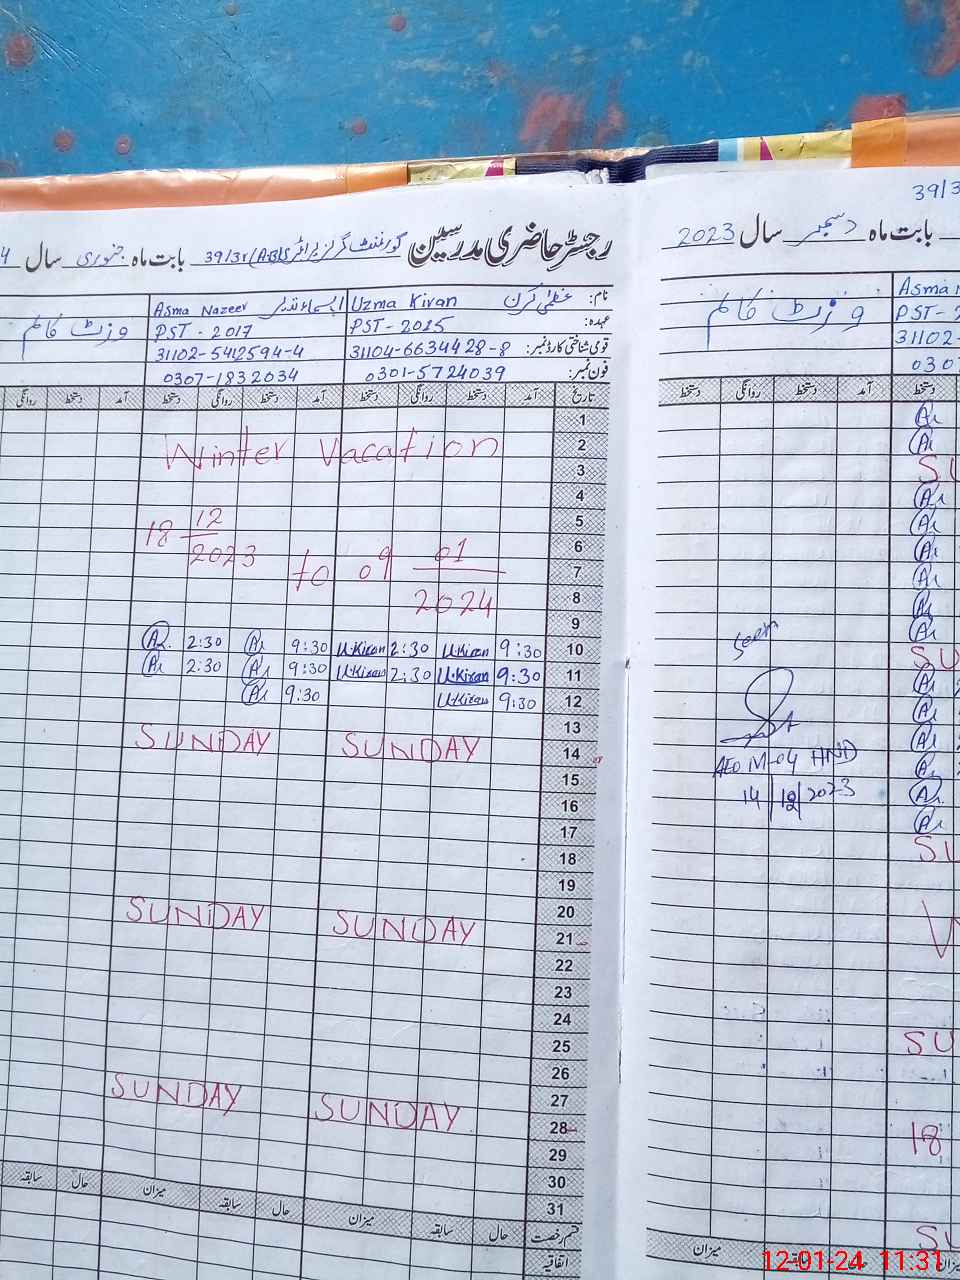 رجسٹر حاضری مدرسین گورنمنٹ گرلز پرائمری 39/3R/(AB)S بابت ماہ جنوری سال 4
نام: عظمیٰ کرن Uzma Kiran اسماء نذیر Asma Nazeer
وزٹ کالم
عہدہ: PST-2015 PST-2017
قومی شناختی کارڈ نمبر: 31104-6634428-8 31102-5412594-4
فون نمبر: 0301-5724039 0307-1832034
تاریخ آمد دستخط روانگی دستخط آمد دستخط روانگی دستخط آمد دستخط روانگی
1
2
Winter Vacation
3
4
5
18 12/2023 to 09 01/2024
6
7
8
9
10 9:30 U.Kiran 2:30 U.Kiran 9:30 Ar 2:30 Ar
11 9:30 U.Kiran 2:30 U.Kiran 9:30 Ar 2:30 Ar
12 9:30 U.Kiran 9:30 Ar
13
14 SUNDAY SUNDAY
15
16
17
18
19
20
21 SUNDAY SUNDAY
22
23
24
25
26
27
28 SUNDAY SUNDAY
29
30
31
قسم رخصت حال سابقہ میزان حال سابقہ میزان حال سابقہ
اتفاقیہ
39/3
بابت ماہ دسمبر سال 2023
Asma N
وزٹ کالم
PST-2
31102-
030
دستخط آمد دستخط روانگی دستخط
Seen
AEO M-04 HND
14/12/2023
SU
SU
SU
W
SU
18
SU
میزان سابقہ
12-01-24 11:31